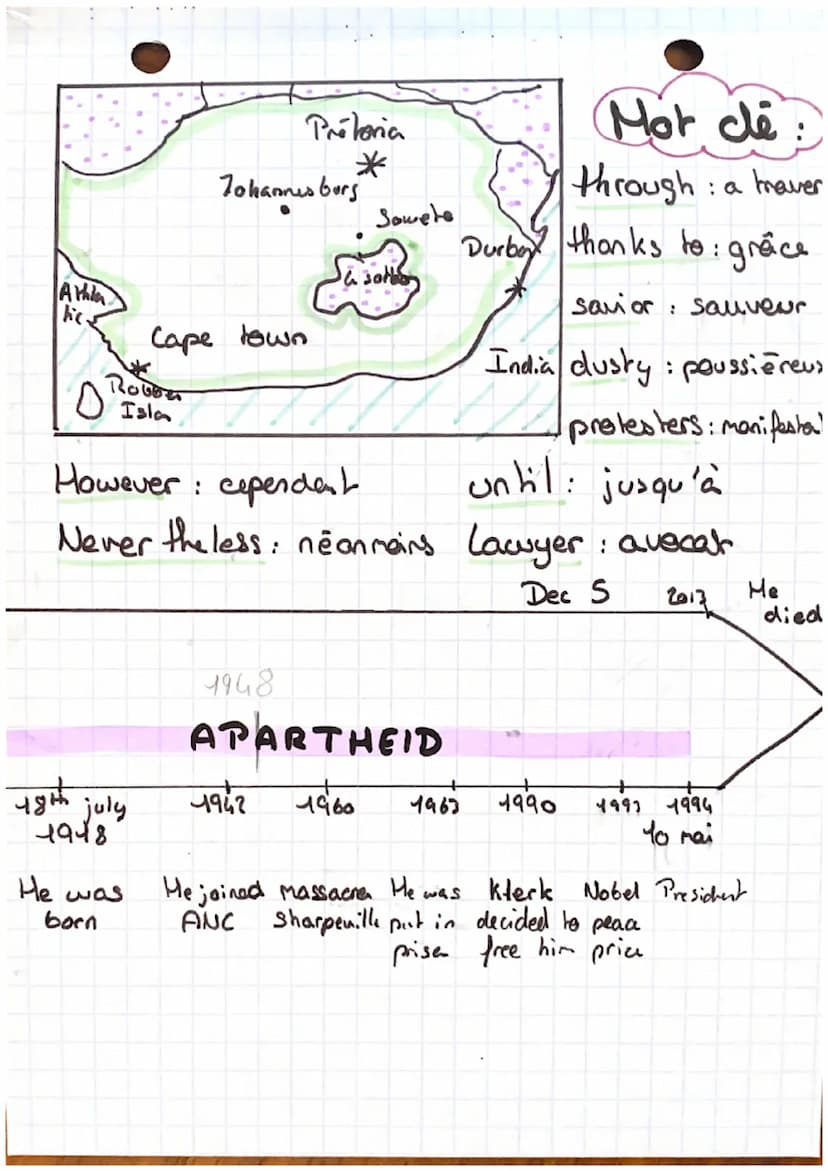 Mot clé :
Prétoria
Johannesburg
Soweto
Durban
Athla
tic
Cape town
India
Robben
Islan
through : a traver
thanks to : grâce
savior : sauveur
dusty : poussiéreux
protesters : manifestat
However : cependant
until : jusqu'à
Never theless : néanmoins
Lawyer : avocat
Dec 5 2013 He
died
1948
APARTHEID
18th july
1918
1942 1960 1963 1990 1993 1994
10 mai
He was
born
He joined
ANC
massacre
Sharpeville
He was
put in
prison
Klerk
decided to
free him
Nobel
peace
price
President